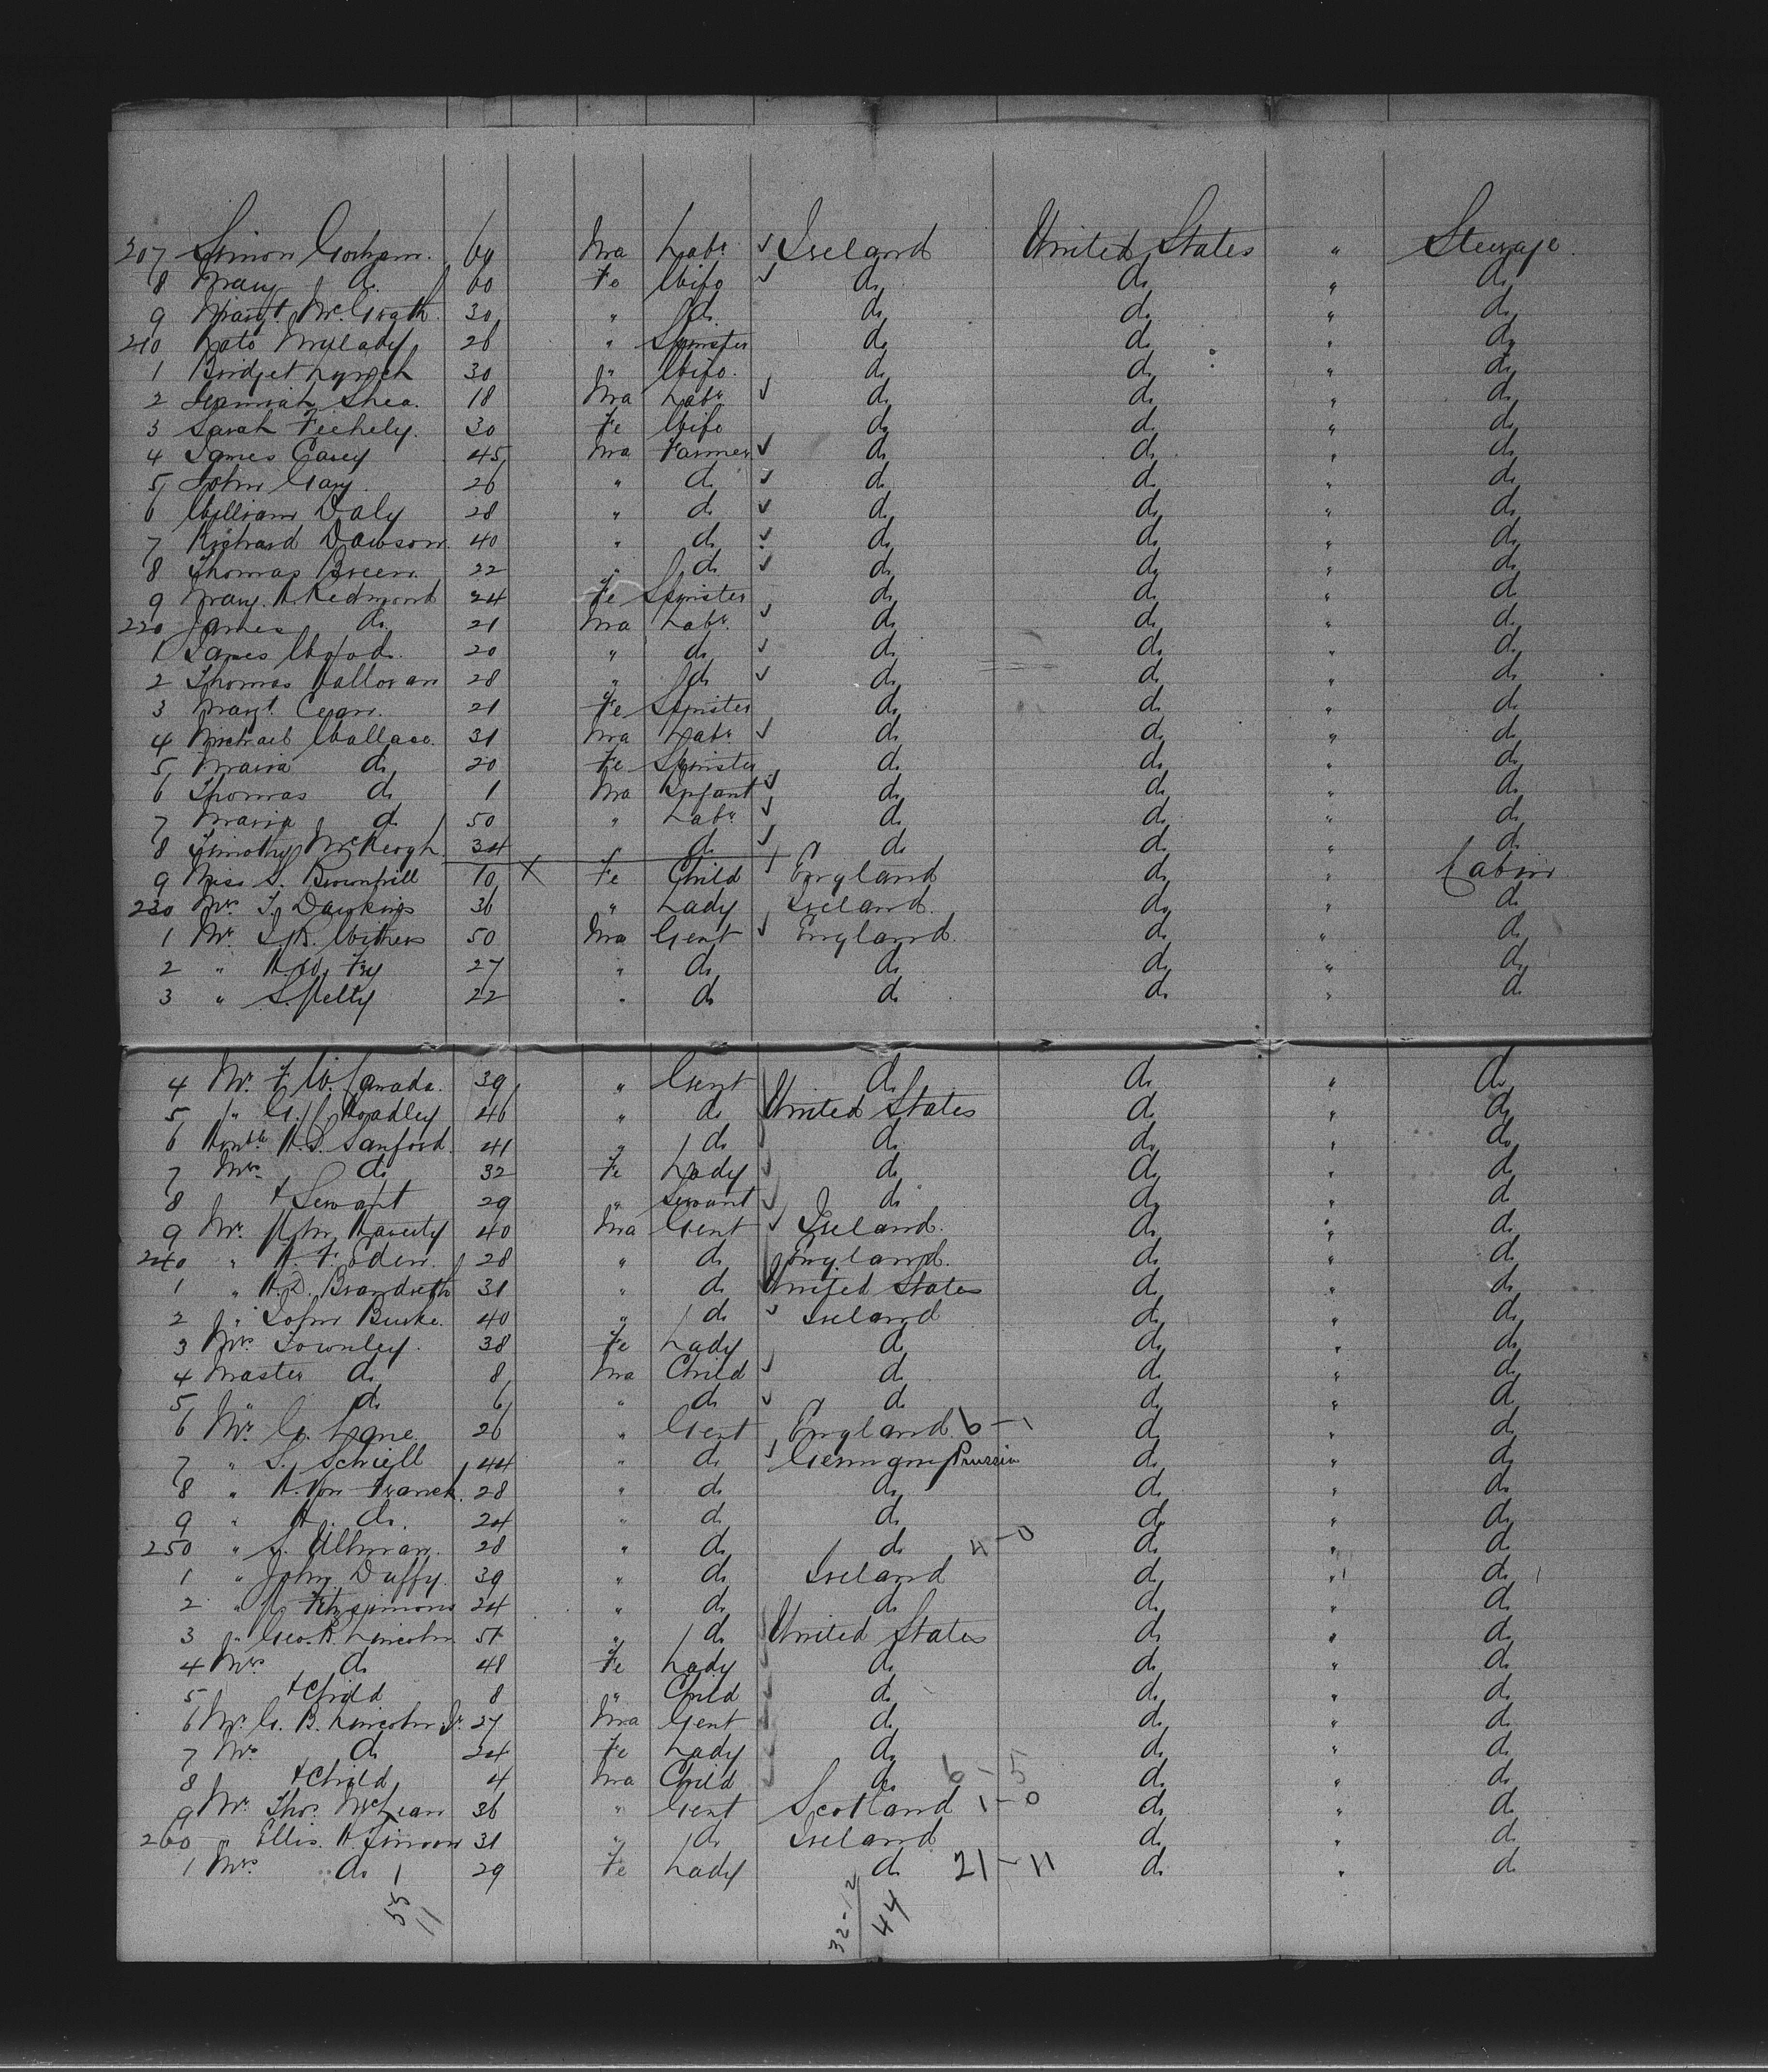 207 Simon Gorham. 60 Ma Labr ✓ Ireland United States " Steerage
8 Mary do 60 Fe Wife ✓ do do " do
9 Margt McGrath 30 " do do do " do
210 Kate Mulady 26 " Spinster do do " do
1 Bridget Lynch 30 " Wife. do do " do
2 Jeremiah Shea. 18 Ma Labr ✓ do do " do
3 Sarah Feehely. 30 Fe Wife do do " do
4 James Casey 45 Ma Farmer ✓ do do " do
5 John Gary 26 " do ✓ do do " do
6 William Daly 28 " do ✓ do do " do
7 Richard Dawson. 40 " do ✓ do do " do
8 Thomas Breen. 22 " do ✓ do do " do
9 Mary A. Redmond 24 Fe Spinster do do " do
220 James do 21 Ma Labr. ✓ do do " do
1 James Wood. 20 " do ✓ do do " do
2 Thomas Halloran 28 " do ✓ do do " do
3 Margt. Egan. 21 Fe Spinster do do " do
4 Michael Wallace. 31 Ma Labr ✓ do do " do
5 Maria do 20 Fe Spinster do do " do
6 Thomas do 1 Ma Infant ✓ do do " do
7 Maria do 50 " Labr ✓ do do " do
8 Timothy McKeogh 34 " do ✓ do do " do
9 Miss S. Brownhill 10 X Fe Child England do " Cabin
230 Mrs. T. Dawkins 36 " Lady Ireland. do " do
1 Mr. J.R. Withers 50 Ma Gent ✓ England. do " do
2 " H.W. Fry 27 " do do do " do
3 " S. Pelty 22 " do do do " do
4 Mr. F. W. Canada. 39 " Gent do do " do
5 " G. Hoadley 46 " do United States do " do
6 Honble H.S. Sanford. 41 " do do do " do
7 Mrs. do 32 Fe Lady ✓ do do " do
8 + Servant 29 " Servant ✓ do do " do
9 Mr. Haverty 40 Ma Gent ✓ Ireland. do " do
240 " H. F. Eden. 28 " do England. do " do
1 " H.D. Brandreth 31 " do United States do " do
2 " John Burke. 40 " do ✓ Ireland do " do
3 Mrs Townley. 38 Fe Lady do do " do
4 Master do 8 Ma Child ✓ do do " do
5 " do 6 " do ✓ do do " do
6 Mr. G. Lane 26 " Gent England. 6 - 1 do " do
7 " S. Schiell 44 " do ✓ Germany Prussia do " do
8 " H. Von Franck. 28 " do do do " do
9 " H. do. 24 " do do do " do
250 " S. Ullman. 28 " do do 4 - 0 do " do
1 " John Duffy. 39 " do Ireland do " do
2 " Fitzsimons 24 " do do do " do
3 " Geo. B. Lincoln 51 " do United States do " do
4 Mrs do 48 Fe Lady ✓ do do " do
5 + Child 8 " Child ✓ do do " do
6 Mr. G. B. Lincoln Jr. 27 Ma Gent do do " do
7 Mrs do 24 Fe Lady do do " do
8 + Child 4 Ma Child ✓ do 6 - 5 do " do
9 Mr. Thos. McLean 36 " Gent Scotland 1 - 0 do " do
260 " Ellis. H. 31 " do Ireland do " do
1 Mrs. do 29 Fe Lady do 21 - 11 do " do
55
11
32-12
44